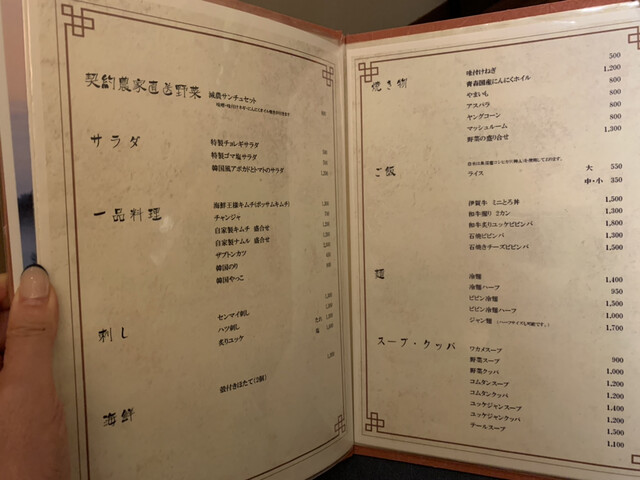 契約農家直送野菜
減農サンチュセット
サラダ
特製チョレギサラダ
特製ゴマ塩サラダ
韓国風アボカドとトマトのサラダ
一品料理
海鮮王様キムチ(ポッサムキムチ)
チャンジャ
自家製キムチ 盛合せ
自家製ナムル 盛合せ
ザブトンカツ
韓国のり
韓国やっこ
刺し
センマイ刺し
ハツ刺し
炙りユッケ
海鮮
殻付きほたて(2個)
焼き物
味付けねぎ 500
青森国産にんにくホイル 1,200
やまいも 800
アスパラ 800
ヤングコーン 800
マッシュルーム 800
野菜の盛り合せ 1,300
ご飯
ライス 大 550
中・小 350
伊賀牛 ミニとろ丼 1,500
和牛握り 2カン 1,300
和牛炙りユッケビビンバ 1,800
石焼ビビンバ 1,300
石焼きチーズビビンバ 1,500
麺
冷麺 1,400
冷麺ハーフ 950
ビビン冷麺 1,500
ビビン冷麺ハーフ 1,000
ジャン麺 (ハーフサイズも可能です。) 1,700
スープ・クッパ
ワカメスープ 900
野菜スープ 1,000
野菜クッパ 1,200
コムタンスープ 1,000
コムタンクッパ 1,200
ユッケジャンスープ 1,400
ユッケジャンクッパ 1,200
テールスープ 1,500
1,100